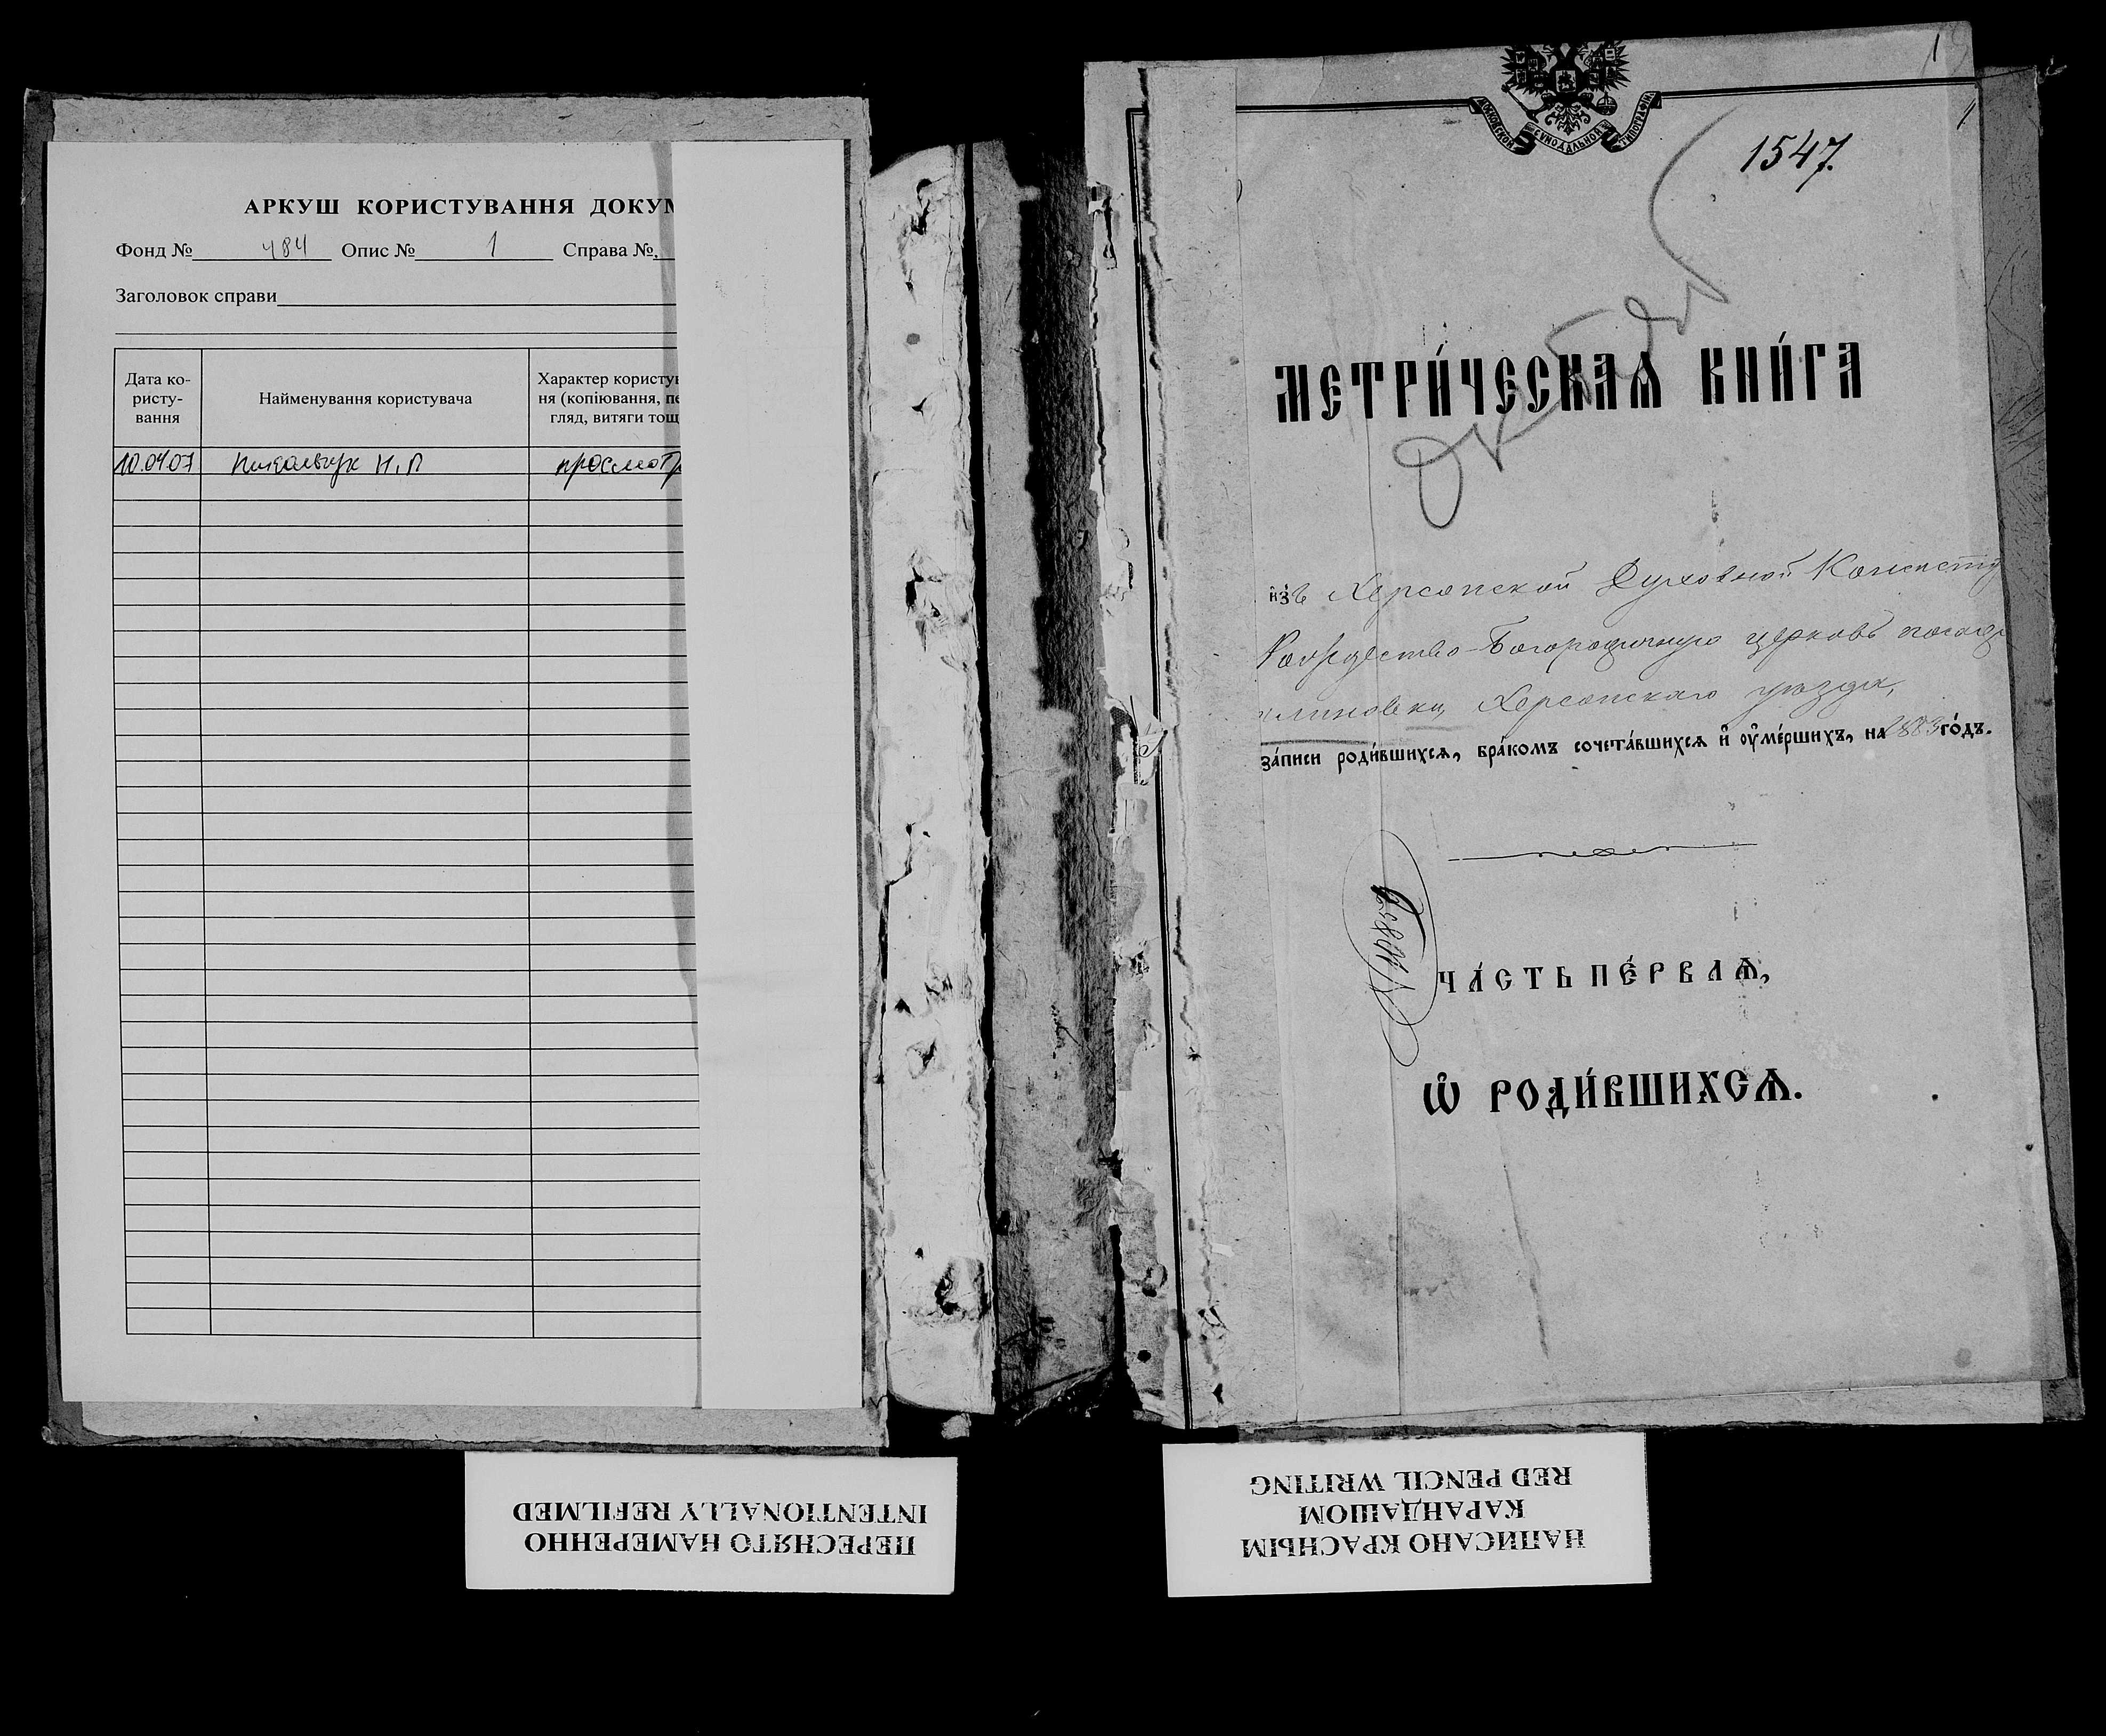 АРКУШ КОРИСТУВАННЯ ДОКУМ
Фонд № 484 Опис № 1 Справа №
Заголовок справи
Дата ко-
ристу-
вання
Найменування користувача
Характер користу
ня (копіювання, пе
гляд, витяги тощ
10.04.07 Н.П просмотр
ПЕРЕСНЯТО НАМЕРЕННО
INTENTIONALLY REFILMED
1
1
МОСКОВСКОЙ СѴНОДАЛЬНОЙ ТИПОГРАФІИ
1547.
МЕТРИ́ЧЕСКАѦ КНИ́ГА
и҆зъ Херсонской Духовной Консисто
Рождество-Богородичную церковь посада
линовки, Херсонскаго уѣзда,
за́писи роди́вшихсѧ, бра́комъ сочета́вшихсѧ и҆ ᲂу҆ме́ршихъ, на 1883 го́дъ.
ЧА́СТЬ ПЕ́РВАѦ,
Ѡ҆ РОДИ́ВШИХСѦ.
НАПИСАНО КРАСНЫМ
КАРАНДАШОМ
RED PENCIL WRITING